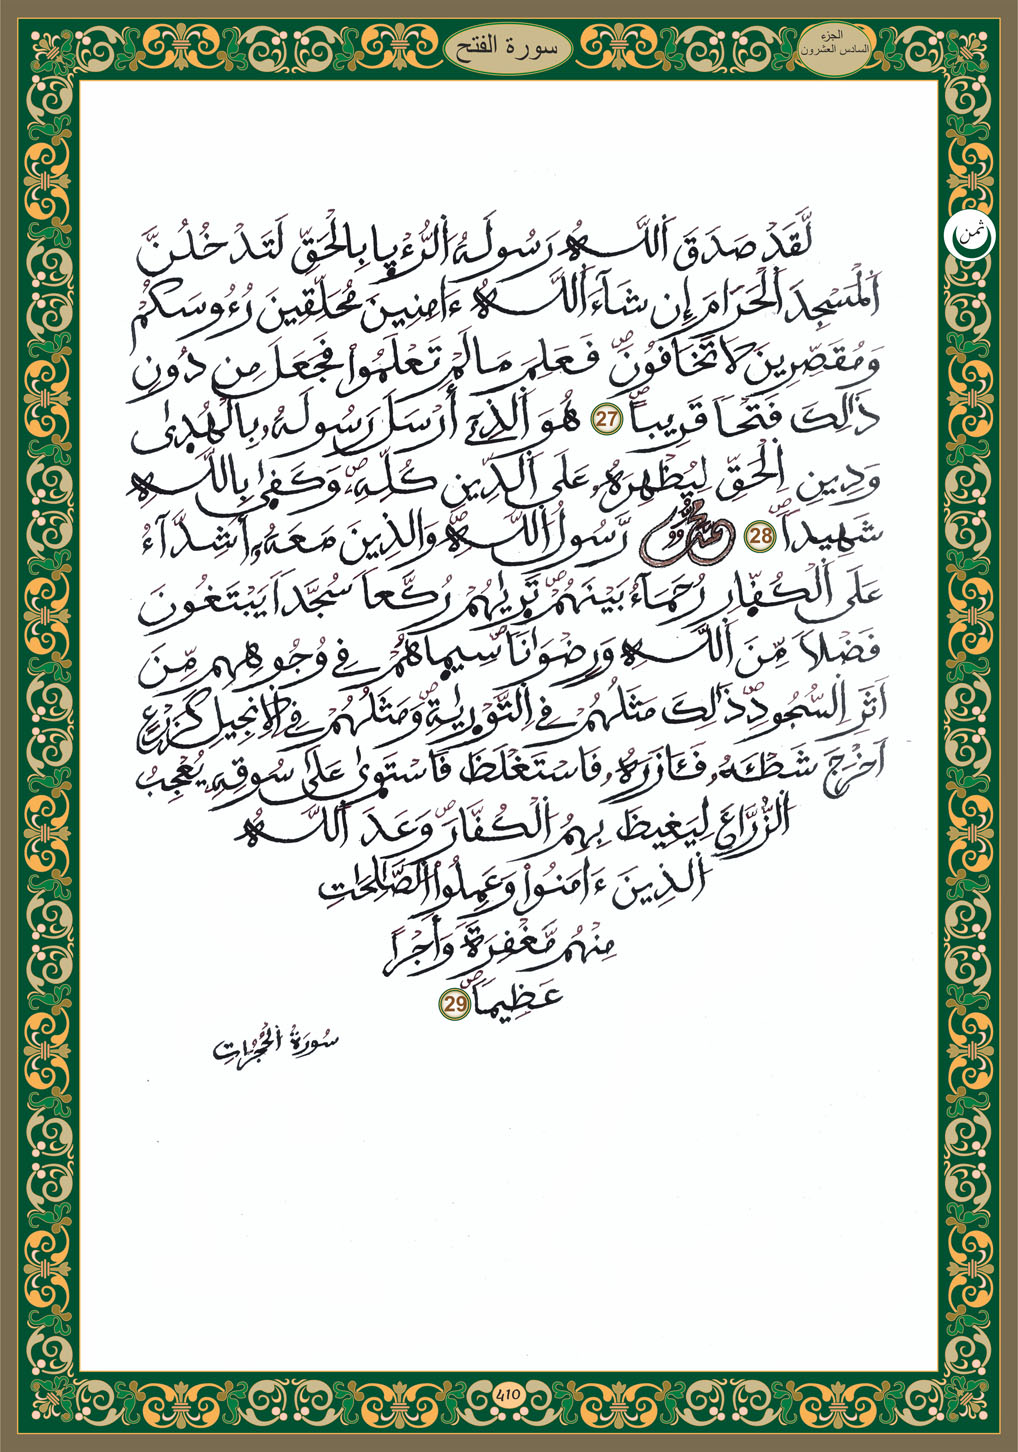 سورة الفتح
الجزء
السادس العشرون
ثمن
لَّقَدْ صَدَقَ اَللَّهُ رَسُولَهُ اَلرُّءْيا بِالْحَقِّ لَتَدْخُلُنَّ
اَلْمَسْجِدَ اَلْحَرَامَ إِن شَآءَ اَللَّهُ ءَامِنِينَ مُحَلِّقِينَ رُءُوسَكُمْ
وَمُقَصِّرِينَ لَا تَخَافُونَۖ فَعَلِمَ مَا لَمْ تَعْلَمُواْ فَجَعَلَ مِن دُونِ
ذَٰلِكَ فَتْحاً قَرِيباًۖ 27 هُوَ اَلذِے أَرْسَلَ رَسُولَهُۥ بِالْهُدَىٰ
وَدِينِ اِلْحَقِّ لِيُظْهِرَهُۥ عَلَى اَلدِّينِ كُلِّهِۦۖ وَكَفَىٰ بِاللَّهِ
شَهِيداًۖ 28 مُّحَمَّدٌ رَّسُولُ اُللَّهِۖ وَالذِينَ مَعَهُۥ أَشِدَّآءُ
عَلَى اَلْكُفّارِ رُحَمَآءُ بَيْنَهُمْۖ تَرَىٰهُمْ رُكَّعاً سُجَّداً يَبْتَغُونَ
فَضْلاً مِّنَ اَللَّهِ وَرِضْوَاناًۖ سِيمَاهُمْ فِے وُجُوهِهِم مِّنَ
اَثَرِ اِلسُّجُودِۖ ذَٰلِكَ مَثَلُهُمْ فِے اِلتَّوْرَىٰةِۖ وَمَثَلُهُمْ فِے اِلْإنجِيلِ كَزَرْعٍ
اَخْرَجَ شَطْـَٔهُۥ فَـَٔازَرَهُۥ فَاسْتَغْلَظَ فَاسْتَوَىٰ عَلَىٰ سُوقِهِۦ يُعْجِبُ
اُلزُّرَّاعَ لِيَغِيظَ بِهِمُ اُلْكُفَّارَۖ وَعَدَ اَللَّهُ
اُلذِينَ ءَامَنُواْ وَعَمِلُواْ اُلصَّالِحَاتِ
مِنْهُم مَّغْفِرَةً وَأَجْراً
عَظِيماًۖ 29
سُورَةُ اُلْحُجُرَاتِ
410